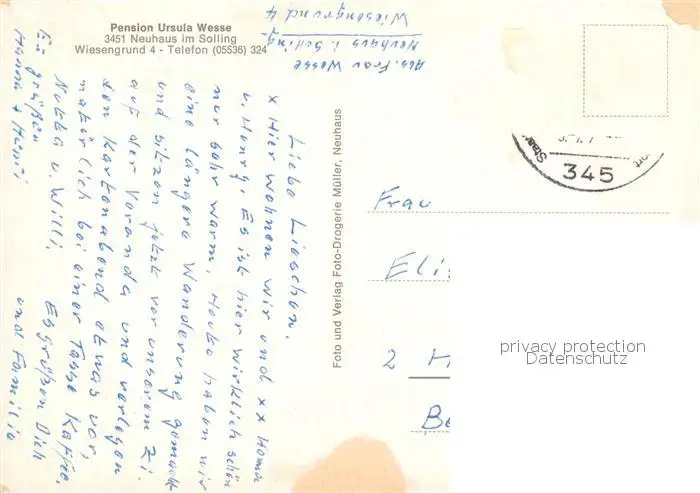 Pension Ursula Wesse
3451 Neuhaus im Solling
Wiesengrund 4 - Telefon (05536) 324
Abs. Frau Wesse
Neuhaus i. Solling
Wiesengrund 4
Liebe Lieschen,
x Hier wohnen wir und xx Homa
u. Henry. Es ist hier wirklich schön
nur sehr warm. Heute haben wir
eine längere Wanderung gemacht
und sitzen jetzt vor unserem Zi.
auf der Veranda und verlegen
den Kartenabend etwas vor,
natürlich bei einer Tasse Kaffee.
u. Willi. Es grüßen Dich
Es grüßen und Familie
Foto und Verlag Foto-Drogerie Müller, Neuhaus
345
Frau
Eli
2 H
privacy protection
Datenschutz